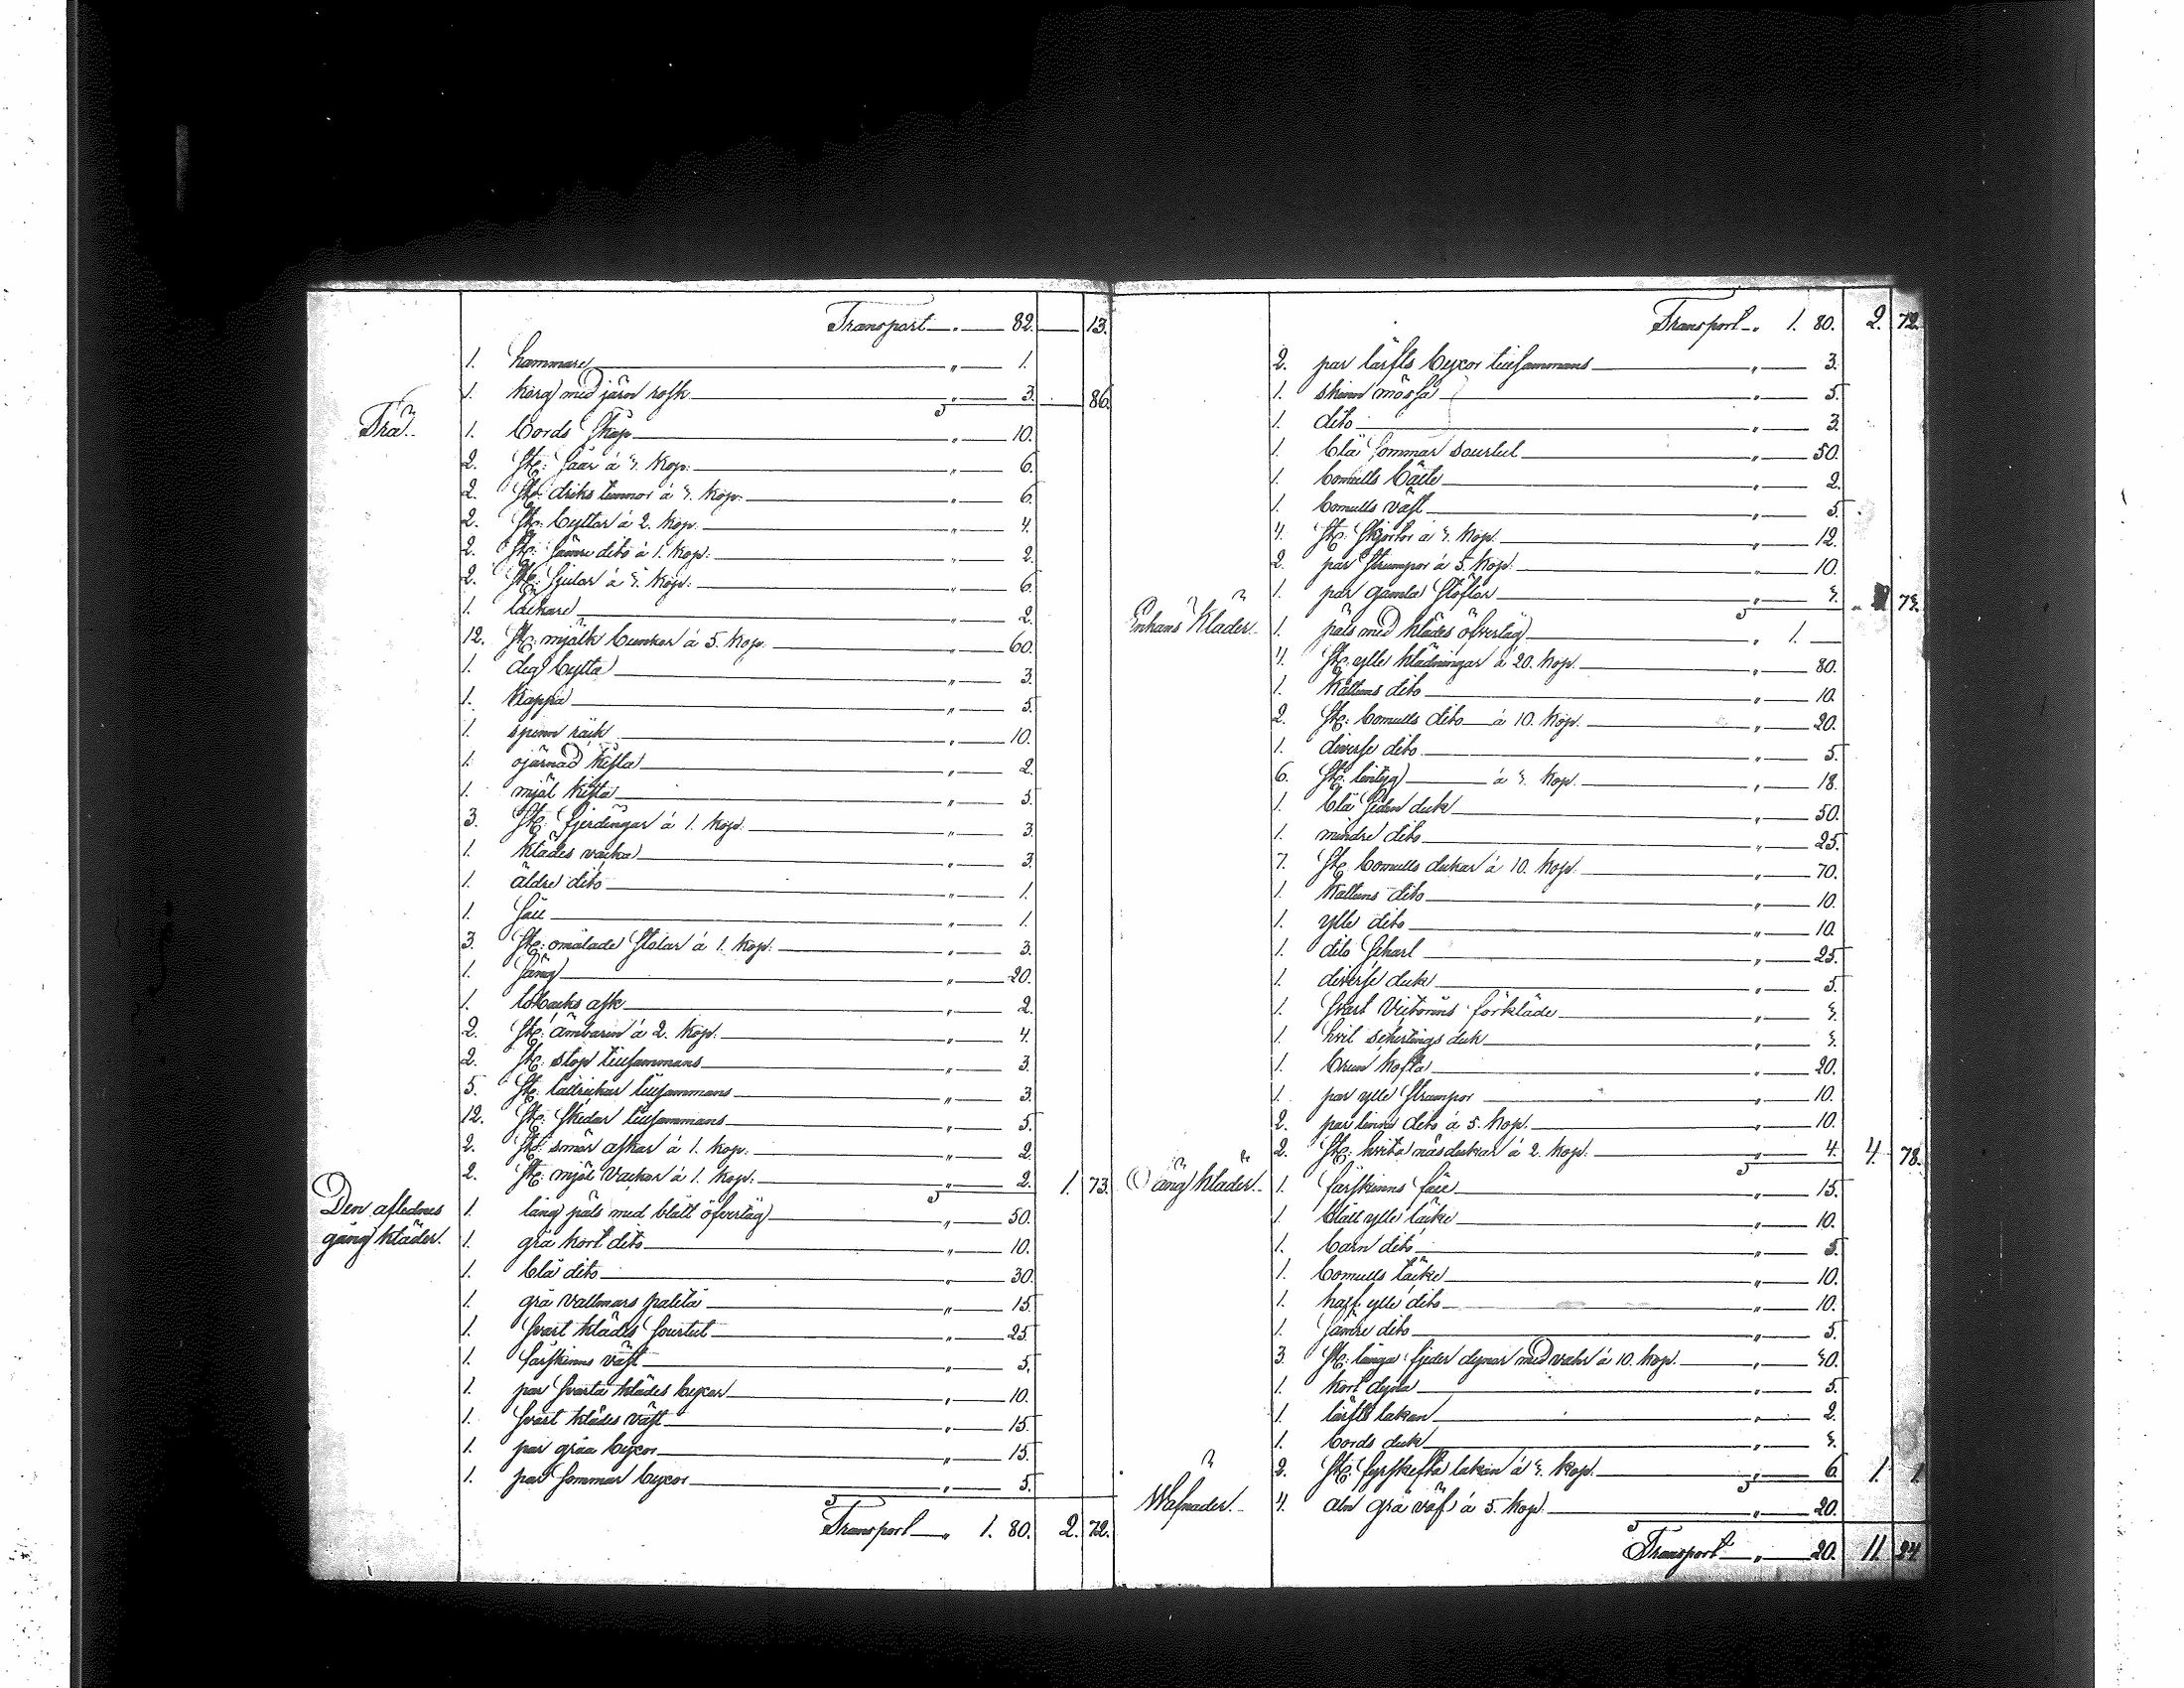 Transport " 82. 13.
1. hammare " 1.
1. korg med järn rosk " 3. 86.
Trä.
1. bords skåp " 10.
2. St: såar á 3. kop. " 6.
2. St: driks tunnor á 3. kop. " 6.
2. St: byttor á 2. kop. " 4.
2. St: sämre dito á 1. kop. " 2.
2. St: á 3. kop. " 6.
1. " 2.
12. St: mjölk bunkar á 5. kop. " 60.
1. deg bytta " 3.
1. kappa " 5.
1. spinn råck " 10.
1. ojärnad kista " 2.
1. mjöl kista " 5.
3. St: fjerdingar á 1. kop. " 3.
1. klädes vacka " 3.
1. äldre dito " 1.
1. såll " 1.
3. St: omålade stolar á 1. kop. " 3.
1. säng " 20.
1. tobacks ask " 2.
2. St: ämbaren á 2. kop. " 4.
2. St: stop tillsammans " 3.
5. St: tallrickar tillsammans " 3.
12. St: skedar tillsammans " 5.
2. St: smör askar á 1. kop. " 2.
2. St: mjöl vackor á 1. kop. " 2. 1. 73.
Den aflednes gång kläder.
1. lång päls med blått öfvertåg " 50.
1. grå kort dito " 10.
1. blå dito " 30.
1. grå vallmars palitå " 15.
1. svart klädes sourtut " 25.
1. fårskinns väst " 5.
1. par svarta klädes byxor " 10.
1. svart klädes väst " 15.
1. par gråa byxor " 15.
1. par sommar byxor " 5.
Transport " 1. 80. 2. 72.
Transport " 1. 80. 2. 72.
2. par lärfts byxor tillsammans " 3.
1. skinn mössa " 5.
1. dito " 3.
1. blå sommar sourtut " 50.
1. bomulls bälte " 2.
1. bomulls väst " 5.
4. St: skjortor á 3. kop. " 12.
2. par strumpor á 5. kop. " 10.
1. par gamla stöflar " 3. 73.
Enkans kläder.
1. päls med klädes öfvertåg " 1. —
4. St: ylle klädningar á 20. kop. " 80.
1. kattuns dito " 10.
2. St: bomulls dito á 10. kop. " 20.
1. diverse dito " 5.
6. St: lintyg á 3. kop. " 18.
1. blå siden duk " 50.
1. mindre dito " 25.
7. St: bomulls dukar á 10. kop. " 70.
1. kattuns dito " 10.
1. ylle dito " 10.
1. dito scharl " 25.
1. diverse duk " 5.
1. svart förkläde " 3.
1. hvit schertings duk " 3.
1. brun kofta " 20.
1. par ylle strumpor " 10.
2. par linne dito á 5. kop. " 10.
2. St: hvita näsdukar á 2. kop. " 4. 4. 78.
Säng kläder.
1. fårskinns fäll " 15.
1. blått ylle täcke " 10.
1. barn dito " 5.
1. bomulls täcke " 10.
1. half ylle dito " 10.
1. sämre dito " 5.
3. St: långa fjeder dynor med vahr á 10. kop. " 30.
1. kort dyna " 5.
1. lärfts lakan " 2.
1. bords duk " 3.
2. St: fyrskefta lakan á 3. kop. " 6. 1. 1
Wäfnader.
4. aln grå väf á 5. kop. " 20.
Transport " 20. 11. 24